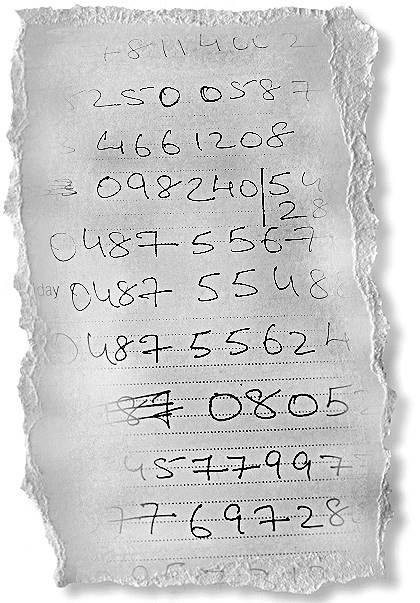 +811400 2
52500587
4661208
098240|54
28
0487 55677
day 0487 55488
0487 55624
87 0805
4577997
7769728